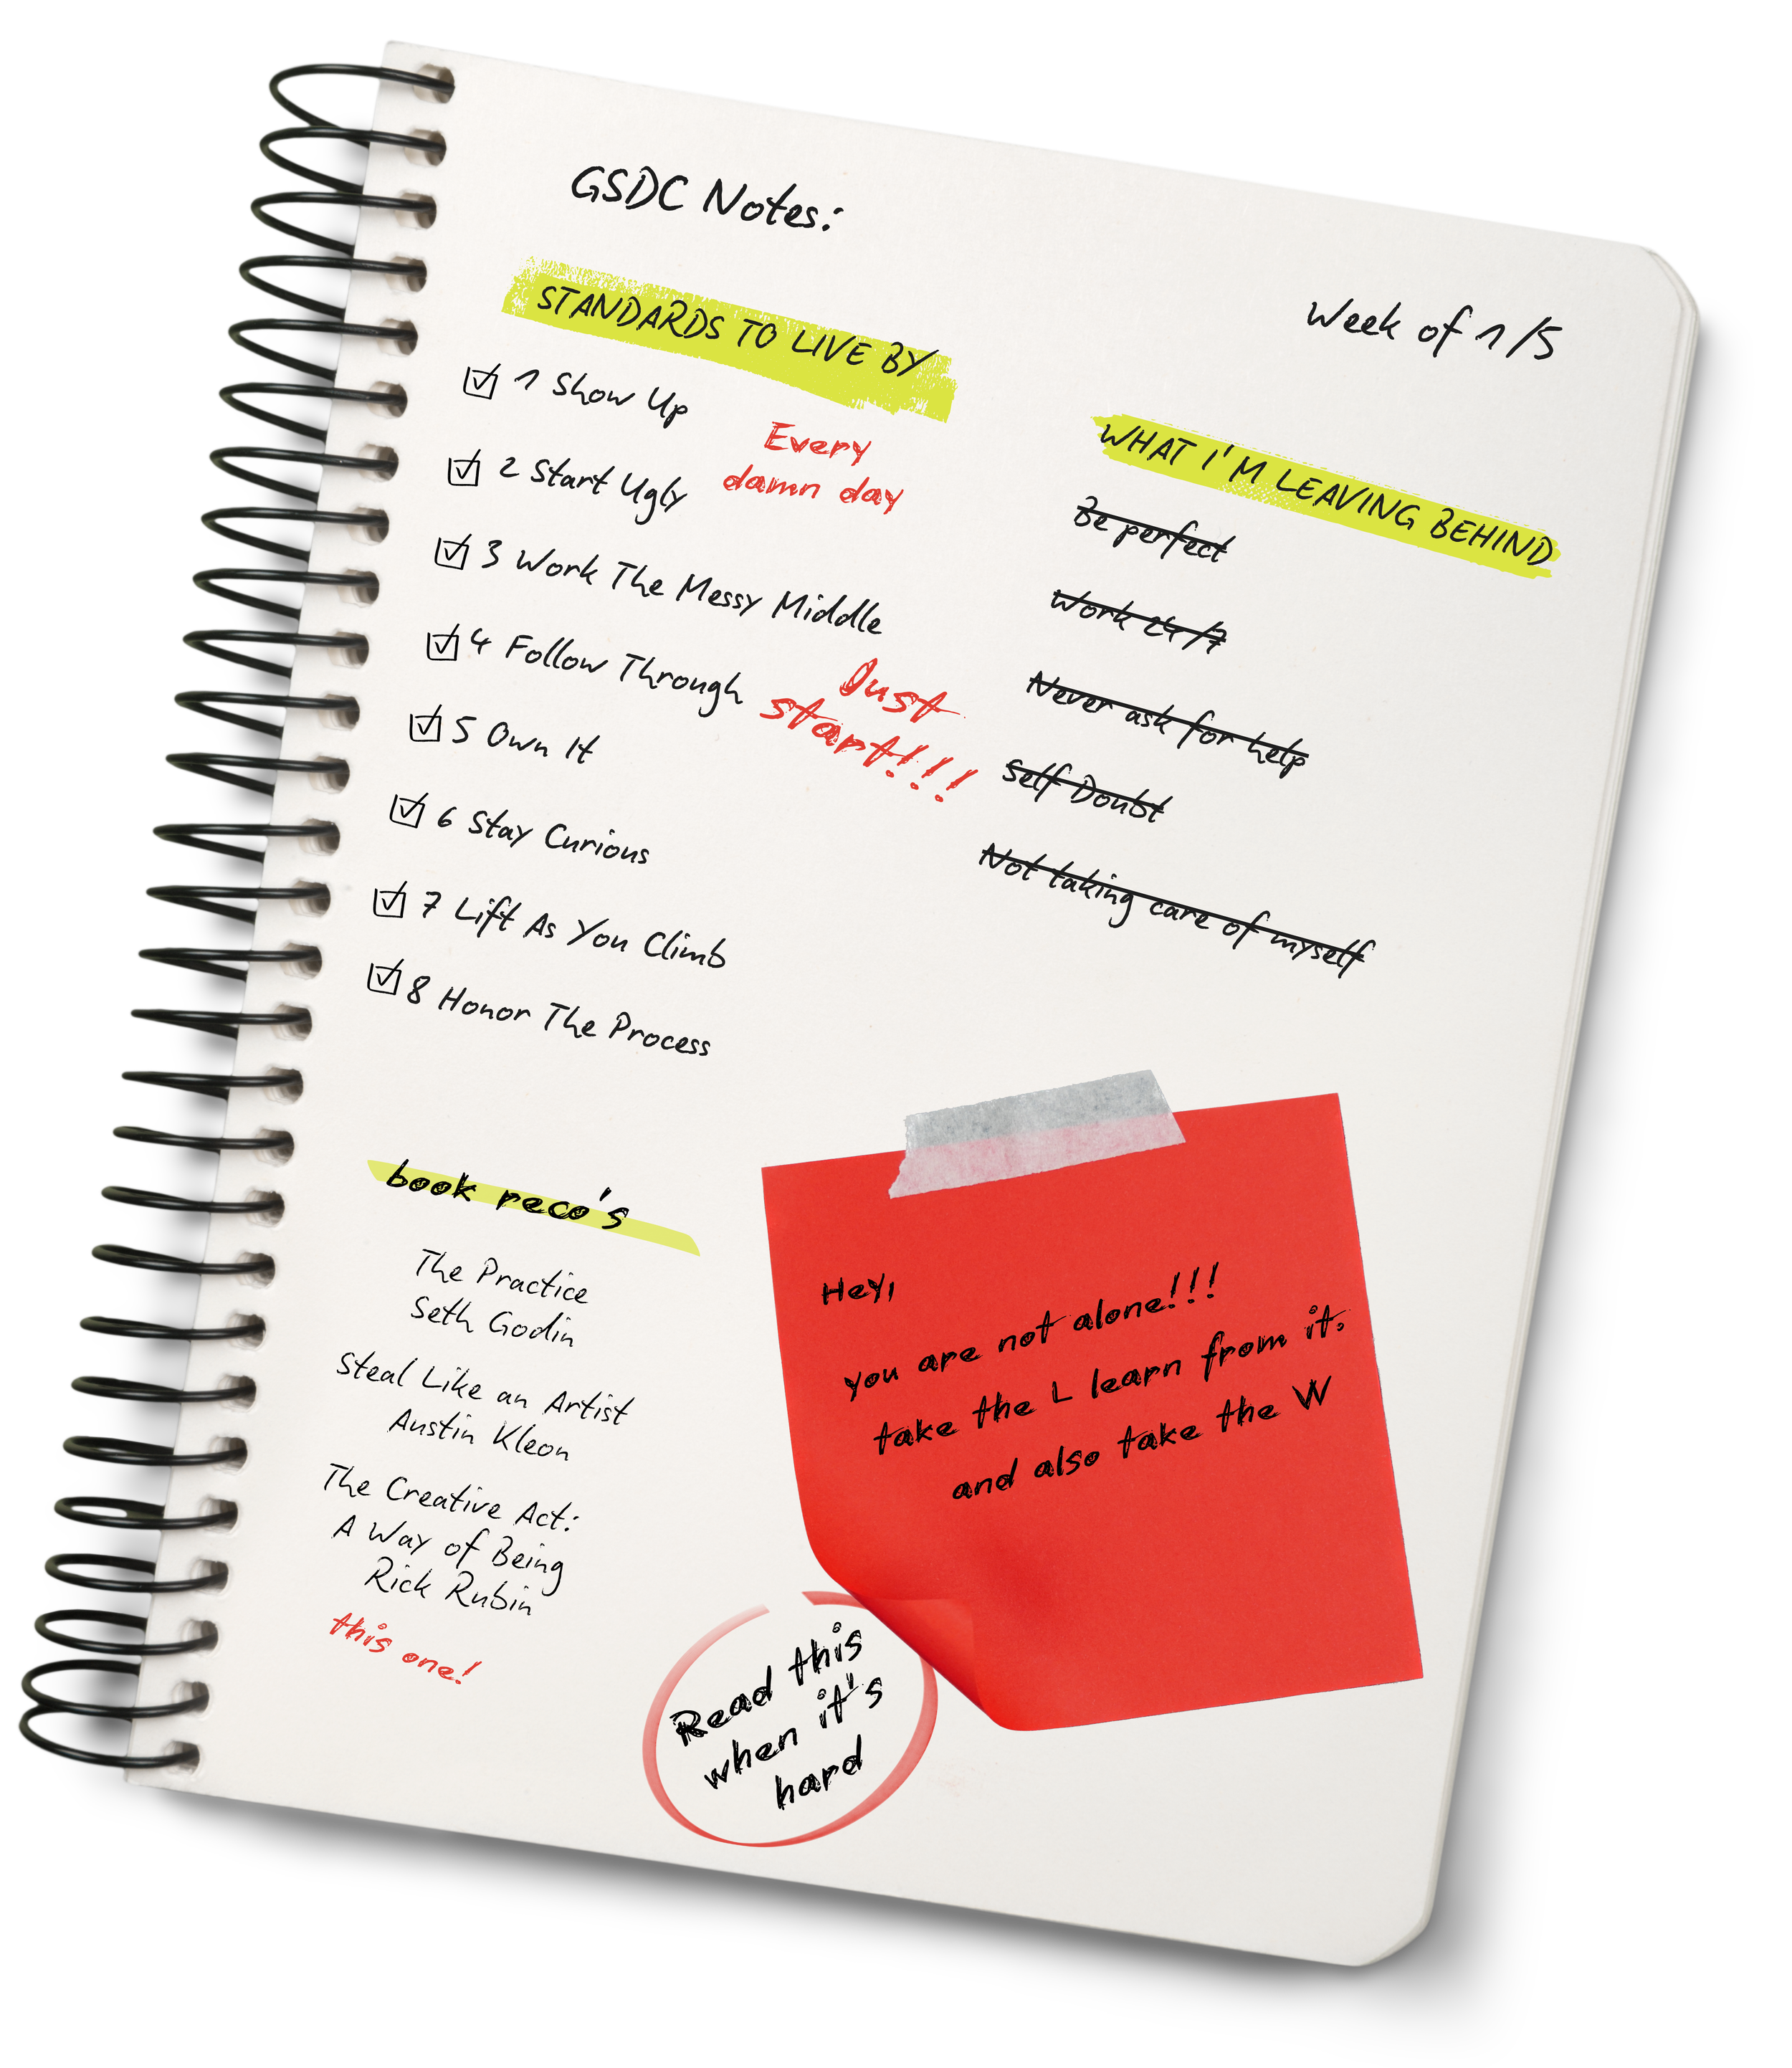 GSDC Notes:
Week of 1/5
STANDARDS TO LIVE BY
1 Show Up
2 Start Ugly
Every
damn day
3 Work The Messy Middle
4 Follow Through
Just
start!!!
5 Own It
6 Stay Curious
7 Lift As You Climb
8 Honor The Process
WHAT I'M LEAVING BEHIND
Be perfect
Work 24/7
Never ask for help
Self Doubt
Not taking care of myself
book reco's
The Practice
Seth Godin
Steal Like an Artist
Austin Kleon
The Creative Act:
A Way of Being
Rick Rubin
this one!
Hey,
you are not alone!!!
take the L learn from it.
and also take the W
Read this
when it's
hard